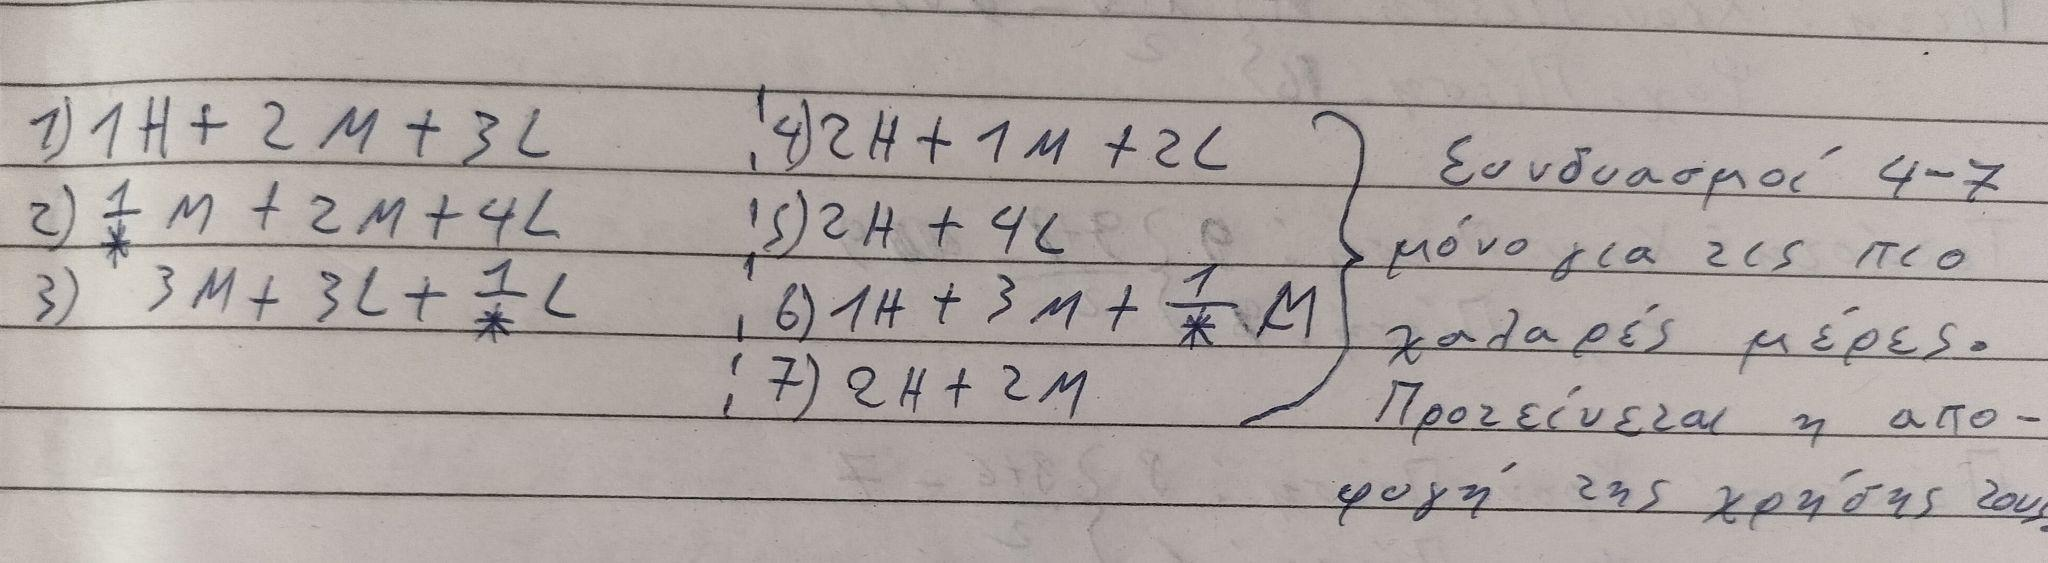 1) 1H + 2M + 3L
2) 1/* M + 2M + 4L
3) 3M + 3L + 1/* L
4) 2H + 1M + 2L
5) 2H + 4L
6) 1H + 3M + 1/* M
7) 2H + 2M
Συνδυασμοί 4-7
μόνο για τις πιο
χαλαρές μέρες.
Προτείνεται η απο-
φυγή της χρήσης τους.